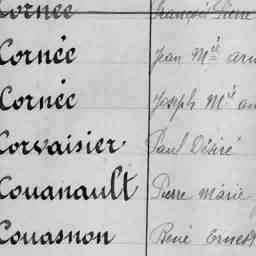 Cornée François Pierre
Cornée Jean Mie
Cornée Joseph Mie
Corvaisier Paul Désiré
Couanault Pierre Marie
Couasnon René Ernest